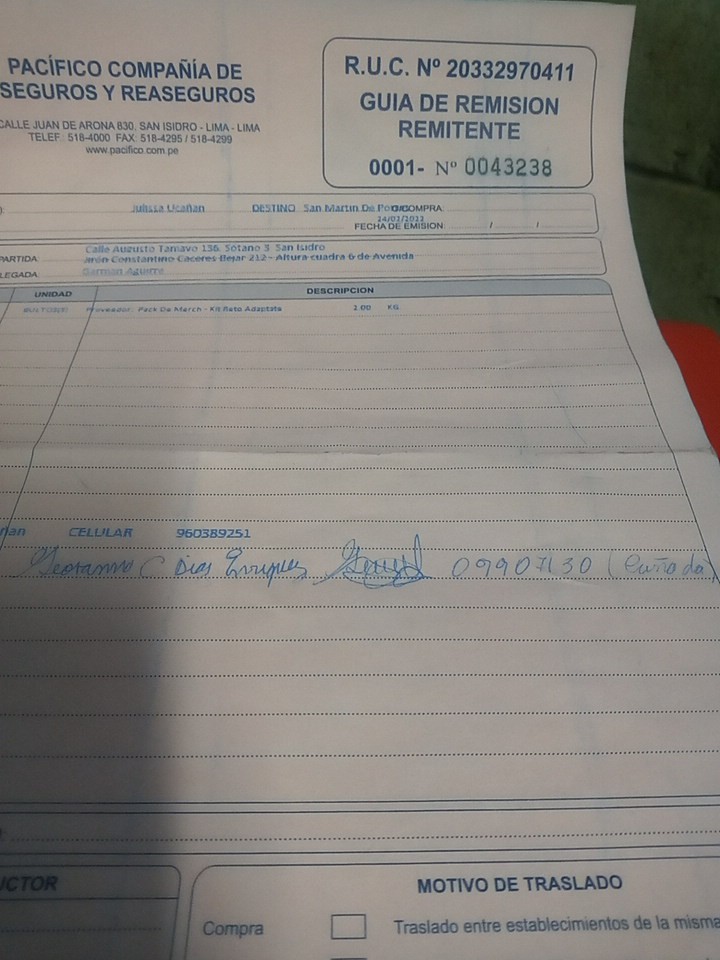 PACÍFICO COMPAÑÍA DE
SEGUROS Y REASEGUROS
CALLE JUAN DE ARONA 830, SAN ISIDRO - LIMA - LIMA
TELEF.: 518-4000 FAX: 518-4295 / 518-4299
www.pacifico.com.pe
R.U.C. Nº 20332970411
GUIA DE REMISION
REMITENTE
0001- Nº 0043238
Julissa Ucañan DESTINO San Martin De COMPRA:
24/02/2022
FECHA DE EMISION: / /
PARTIDA: Calle Augusto Tamayo 156, Sotano 3 San Isidro
LEGADA: Constantino Caceres Bejar 212 - Altura cuadra 6 de Avenida
German Aguirre
UNIDAD DESCRIPCION
Proveedor: Pack De March - Kit Reto Adaptate 1.00 KG
ñan CELULAR 960389251
C Dias Enriquez 09907130 (Cuñada)
UCTOR
MOTIVO DE TRASLADO
Compra Traslado entre establecimientos de la misma